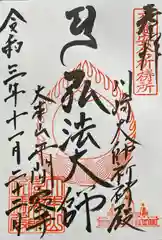 奉拝
川崎大師祈祷殿
弘法大師
大本山平間寺
令和三年十一月二十一日